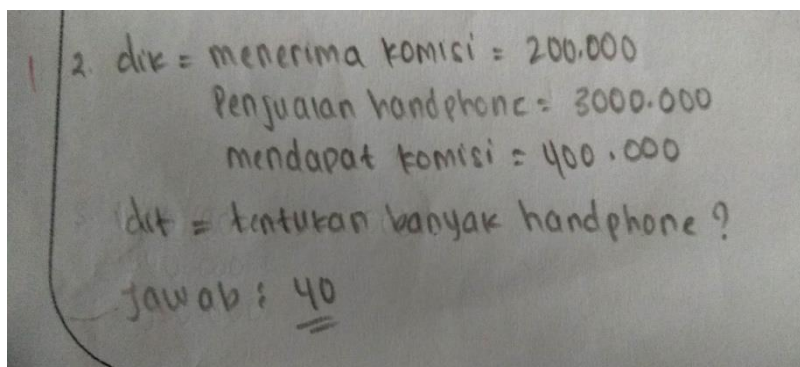 2. dik = menerima komisi = 200.000
Penjualan handphone = 3000.000
mendapat komisi = 400.000
dit = tentukan banyak handphone?
Jawab : 40